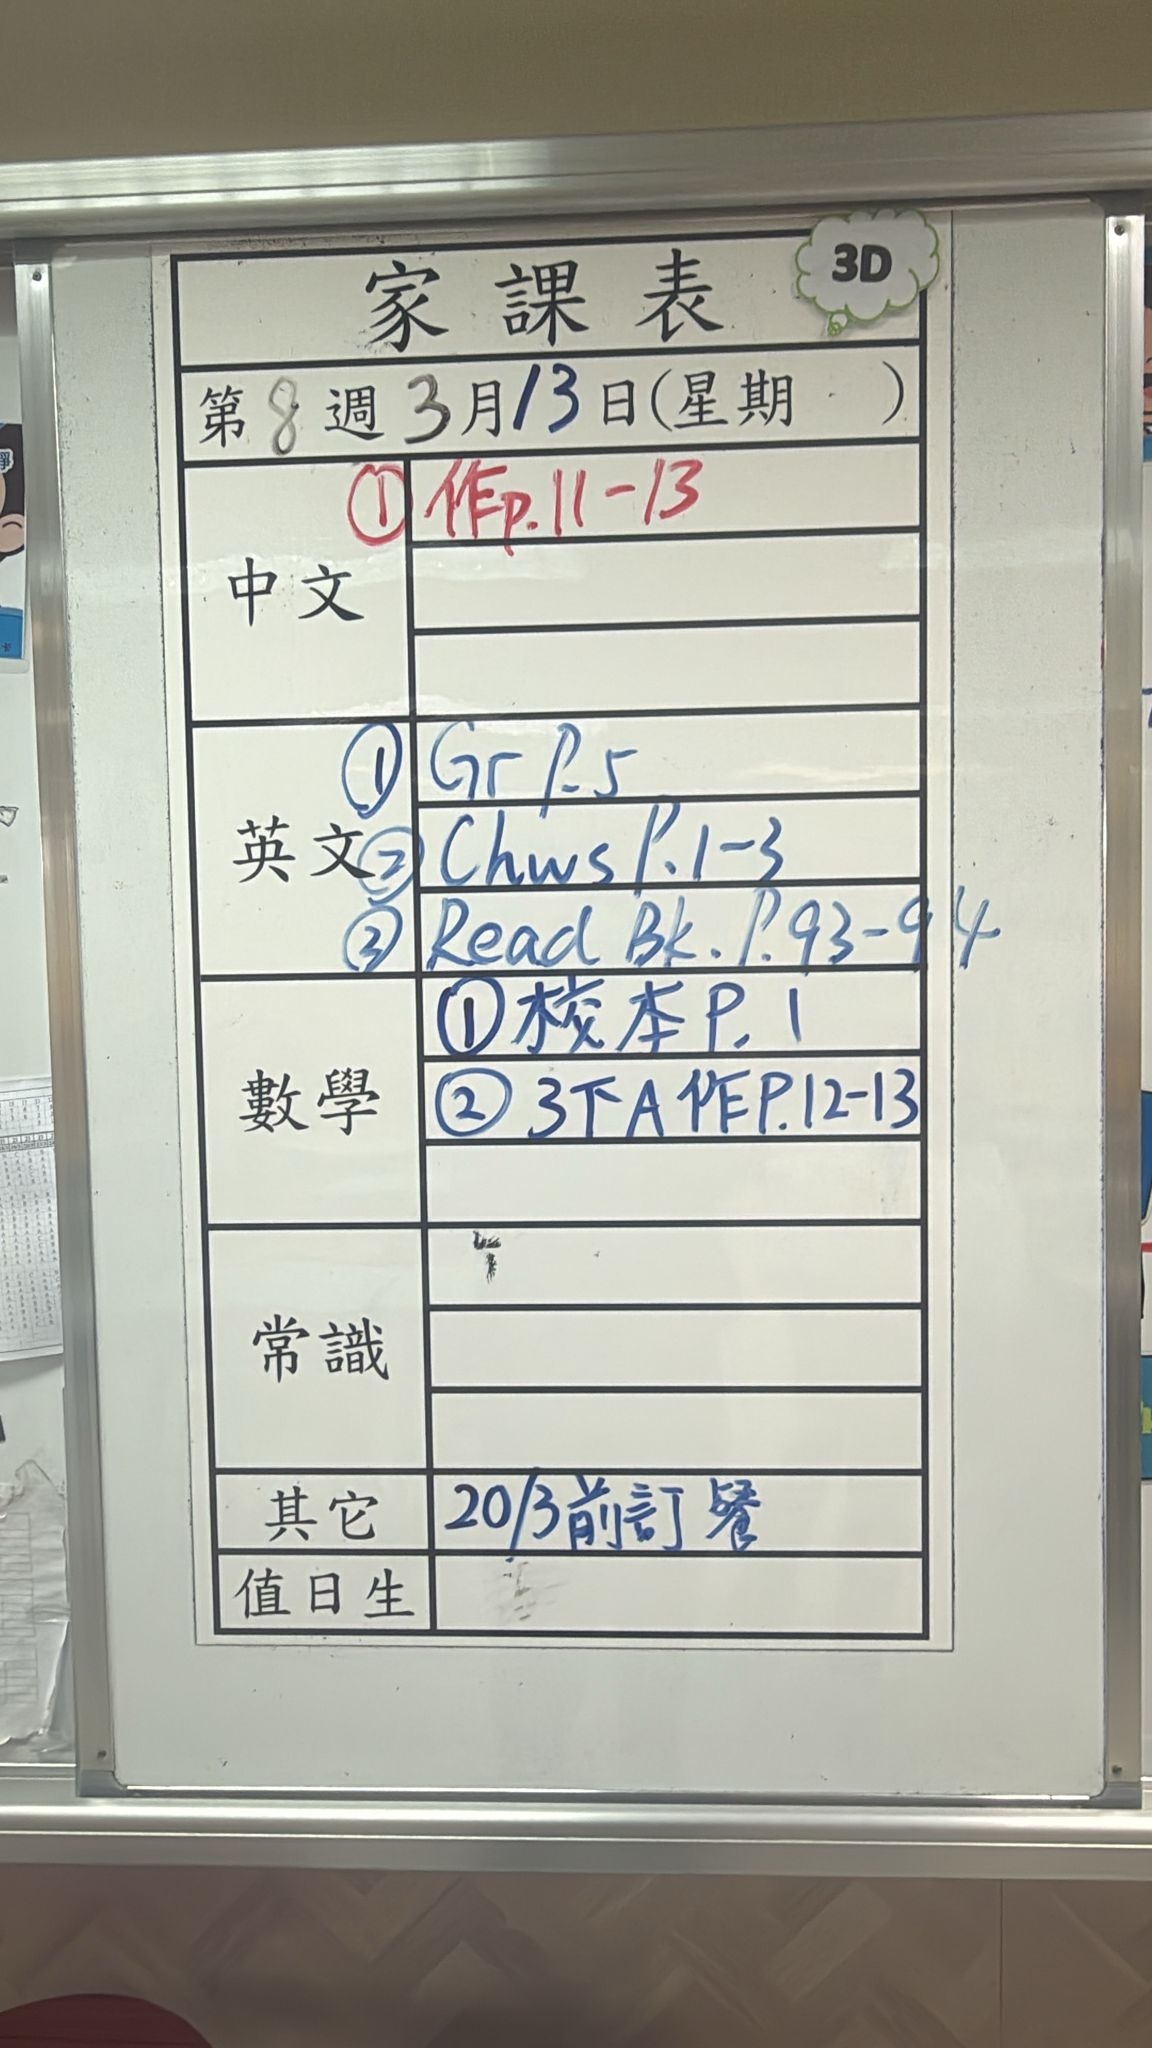 家課表
3D
第8週3月13日(星期 )
中文
① 作p.11-13
英文
① Gr P.5
② Chws P.1-3
③ Read Bk. P.93-94
數學
① 校本 P.1
② 3下A作P.12-13
常識
其它
20/3前訂餐
值日生